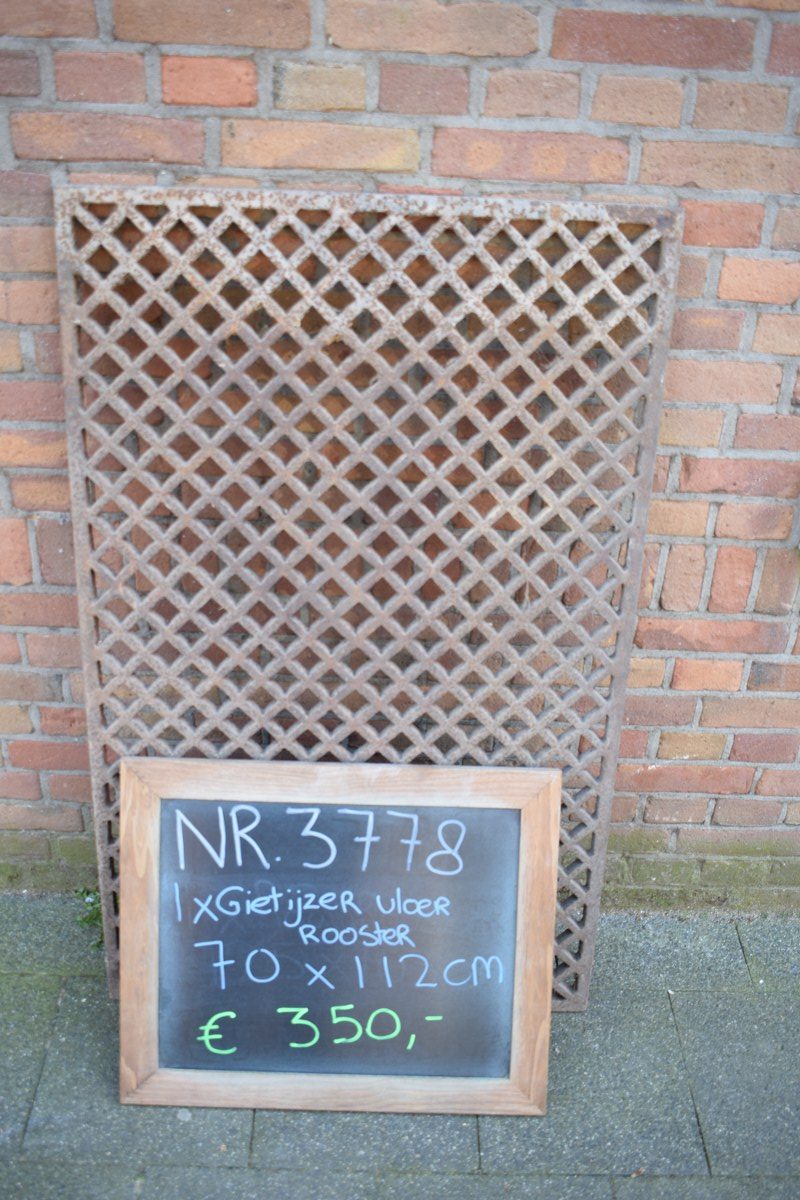 NR. 3778
1x Gietijzer vloer
rooster
70 x 112cm
€ 350,-